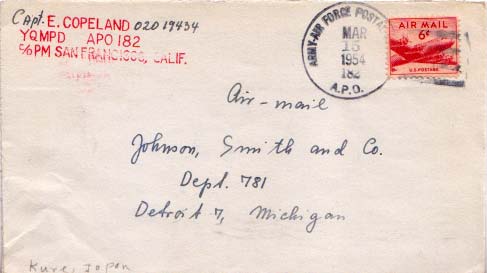 Capt. E. COPELAND 020 19434
YQMPD APO 182
c/o PM SAN FRANCISCO, CALIF.
ARMY-AIR FORCE POSTAL
MAR
15
1954
182
A.P.O.
AIR MAIL
6¢
U.S. POSTAGE
Air-mail
Johnson, Smith and Co.
Dept. 781
Detroit 7, Michigan
Kure, Japan